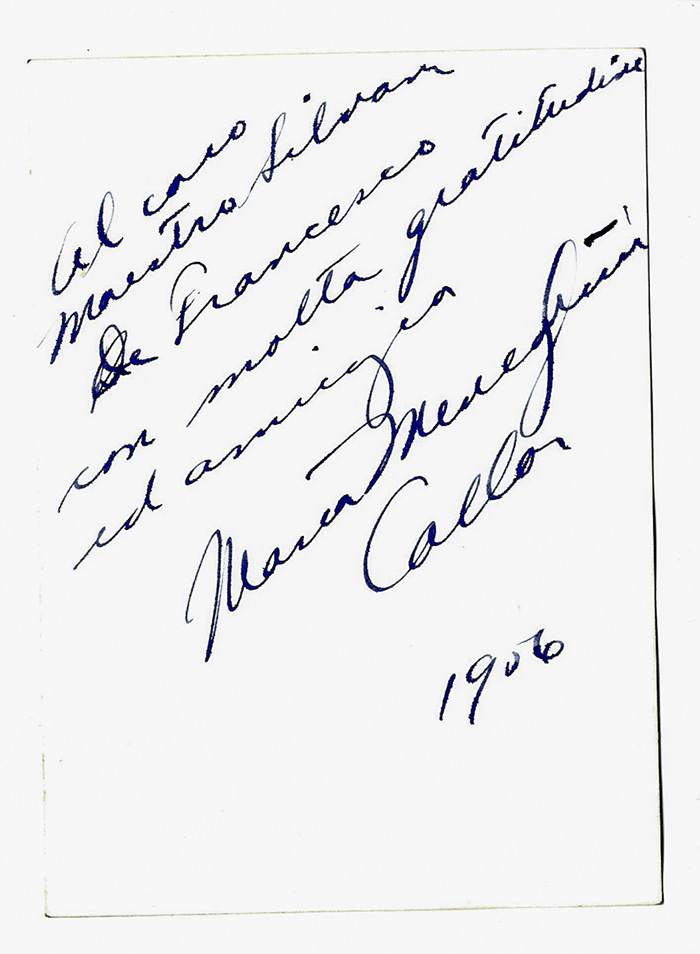 Al caro
Maestro Silvan
De Francesco
con molta gratitudine
ed amicizia
Maria Meneghini
Callas
1956